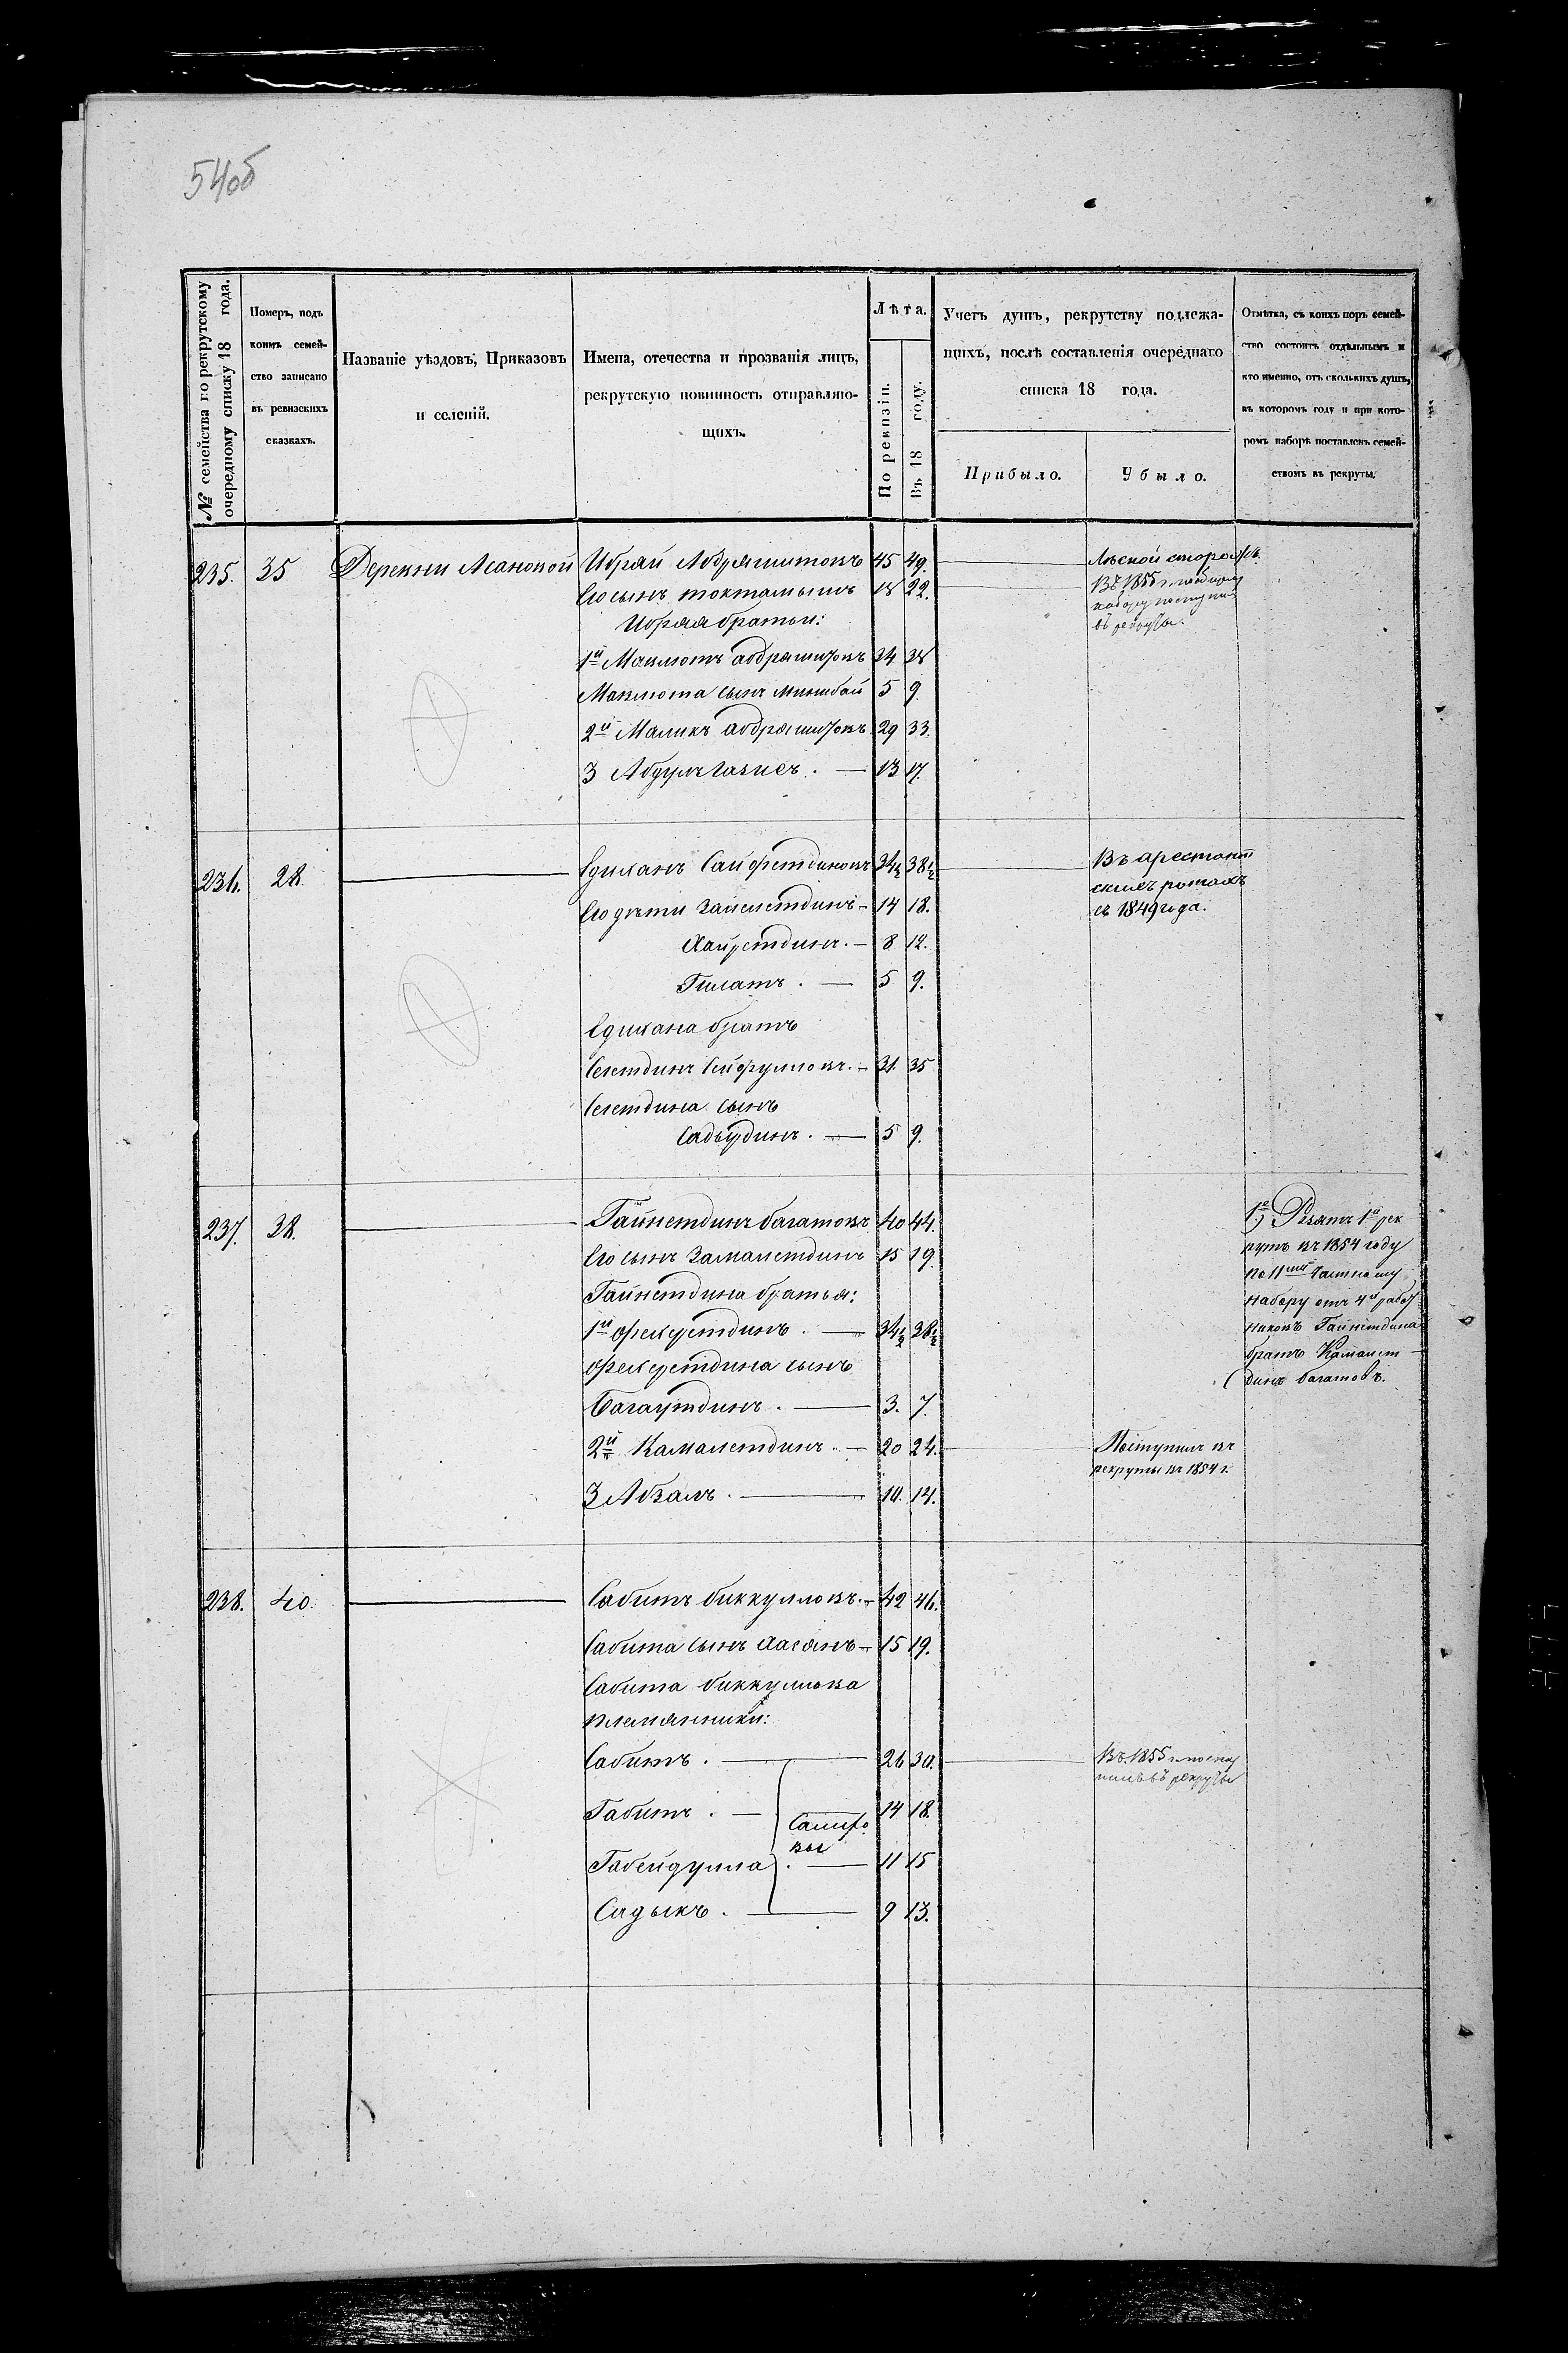 54об
№ семейства по рекрутскому очередному списку 18 года.
Номеръ, подъ коимъ семейство записано въ ревизскихъ сказкахъ.
Названіе уѣздовъ, Приказовъ
и селеній.
Имена, отечества и прозванія лицъ,
рекрутскую повинность отправляю-
щихъ.
Лѣта.
По ревизіи.
Въ 18 году.
Учетъ душъ, рекрутству подлежа-
щихъ, послѣ составленія очереднаго
списка 18 года.
Прибыло.
Убыло.
Отмѣтка, съ коихъ поръ семей-
ство состоитъ отдѣльнымъ и
кто именно, отъ сколькихъ душъ,
въ которомъ году и при кото-
ромъ наборѣ поставленъ семей-
ствомъ въ рекруты.
235. 35 Деревни Асановой Ибрай Абдрашитовъ 45 49. Лѣсной сторожъ.
Его сынъ Токтамышъ 18 22. Въ 1855 г. по
набору поступилъ
въ рекруты.
Ибрая братьи:
1й Мавлютъ Абдрашитовъ 34 38
Мавлюта сынъ Минибай 5 9.
2й Маликъ Абдрашитовъ 29 33.
3 Абдулъ 13 17.
236. 28. Сайфетдиновъ 34½ 38½ Въ арестант
скихъ ротахъ
съ 1849 года.
Его дѣти 14 18.
Хайретдинъ. 8 12.
5 9.
братъ
31. 35
сынъ
5 9.
237. 38. Гайнетдинъ Багатовъ 40 44.
Его сынъ Замалетдинъ 15 19.
Гайнетдина братья:
1й 34½ 38½
сынъ
Багаутдинъ. 3. 7.
2й Камалетдинъ. 20 24. Поступилъ въ
рекруты въ 1854 г.
3 Абзалъ. 10. 14.
1е) Взятъ 1й рек
рутъ въ 1854 году
по 11му частному
набору отъ 4х работ
никовъ Гайнетдина
братъ Камалет
динъ Багатовъ.
238. 40. Сабитъ Биккуловъ. 42 46.
Сабита сынъ Хасанъ 15 19.
Сабита Биккулова
племянники:
Сабитъ. 26 30. Въ 1855 г. посту
пилъ въ рекруты
Габитъ. 14 18.
Габейдулла 11 15
Садыкъ. 9 13.